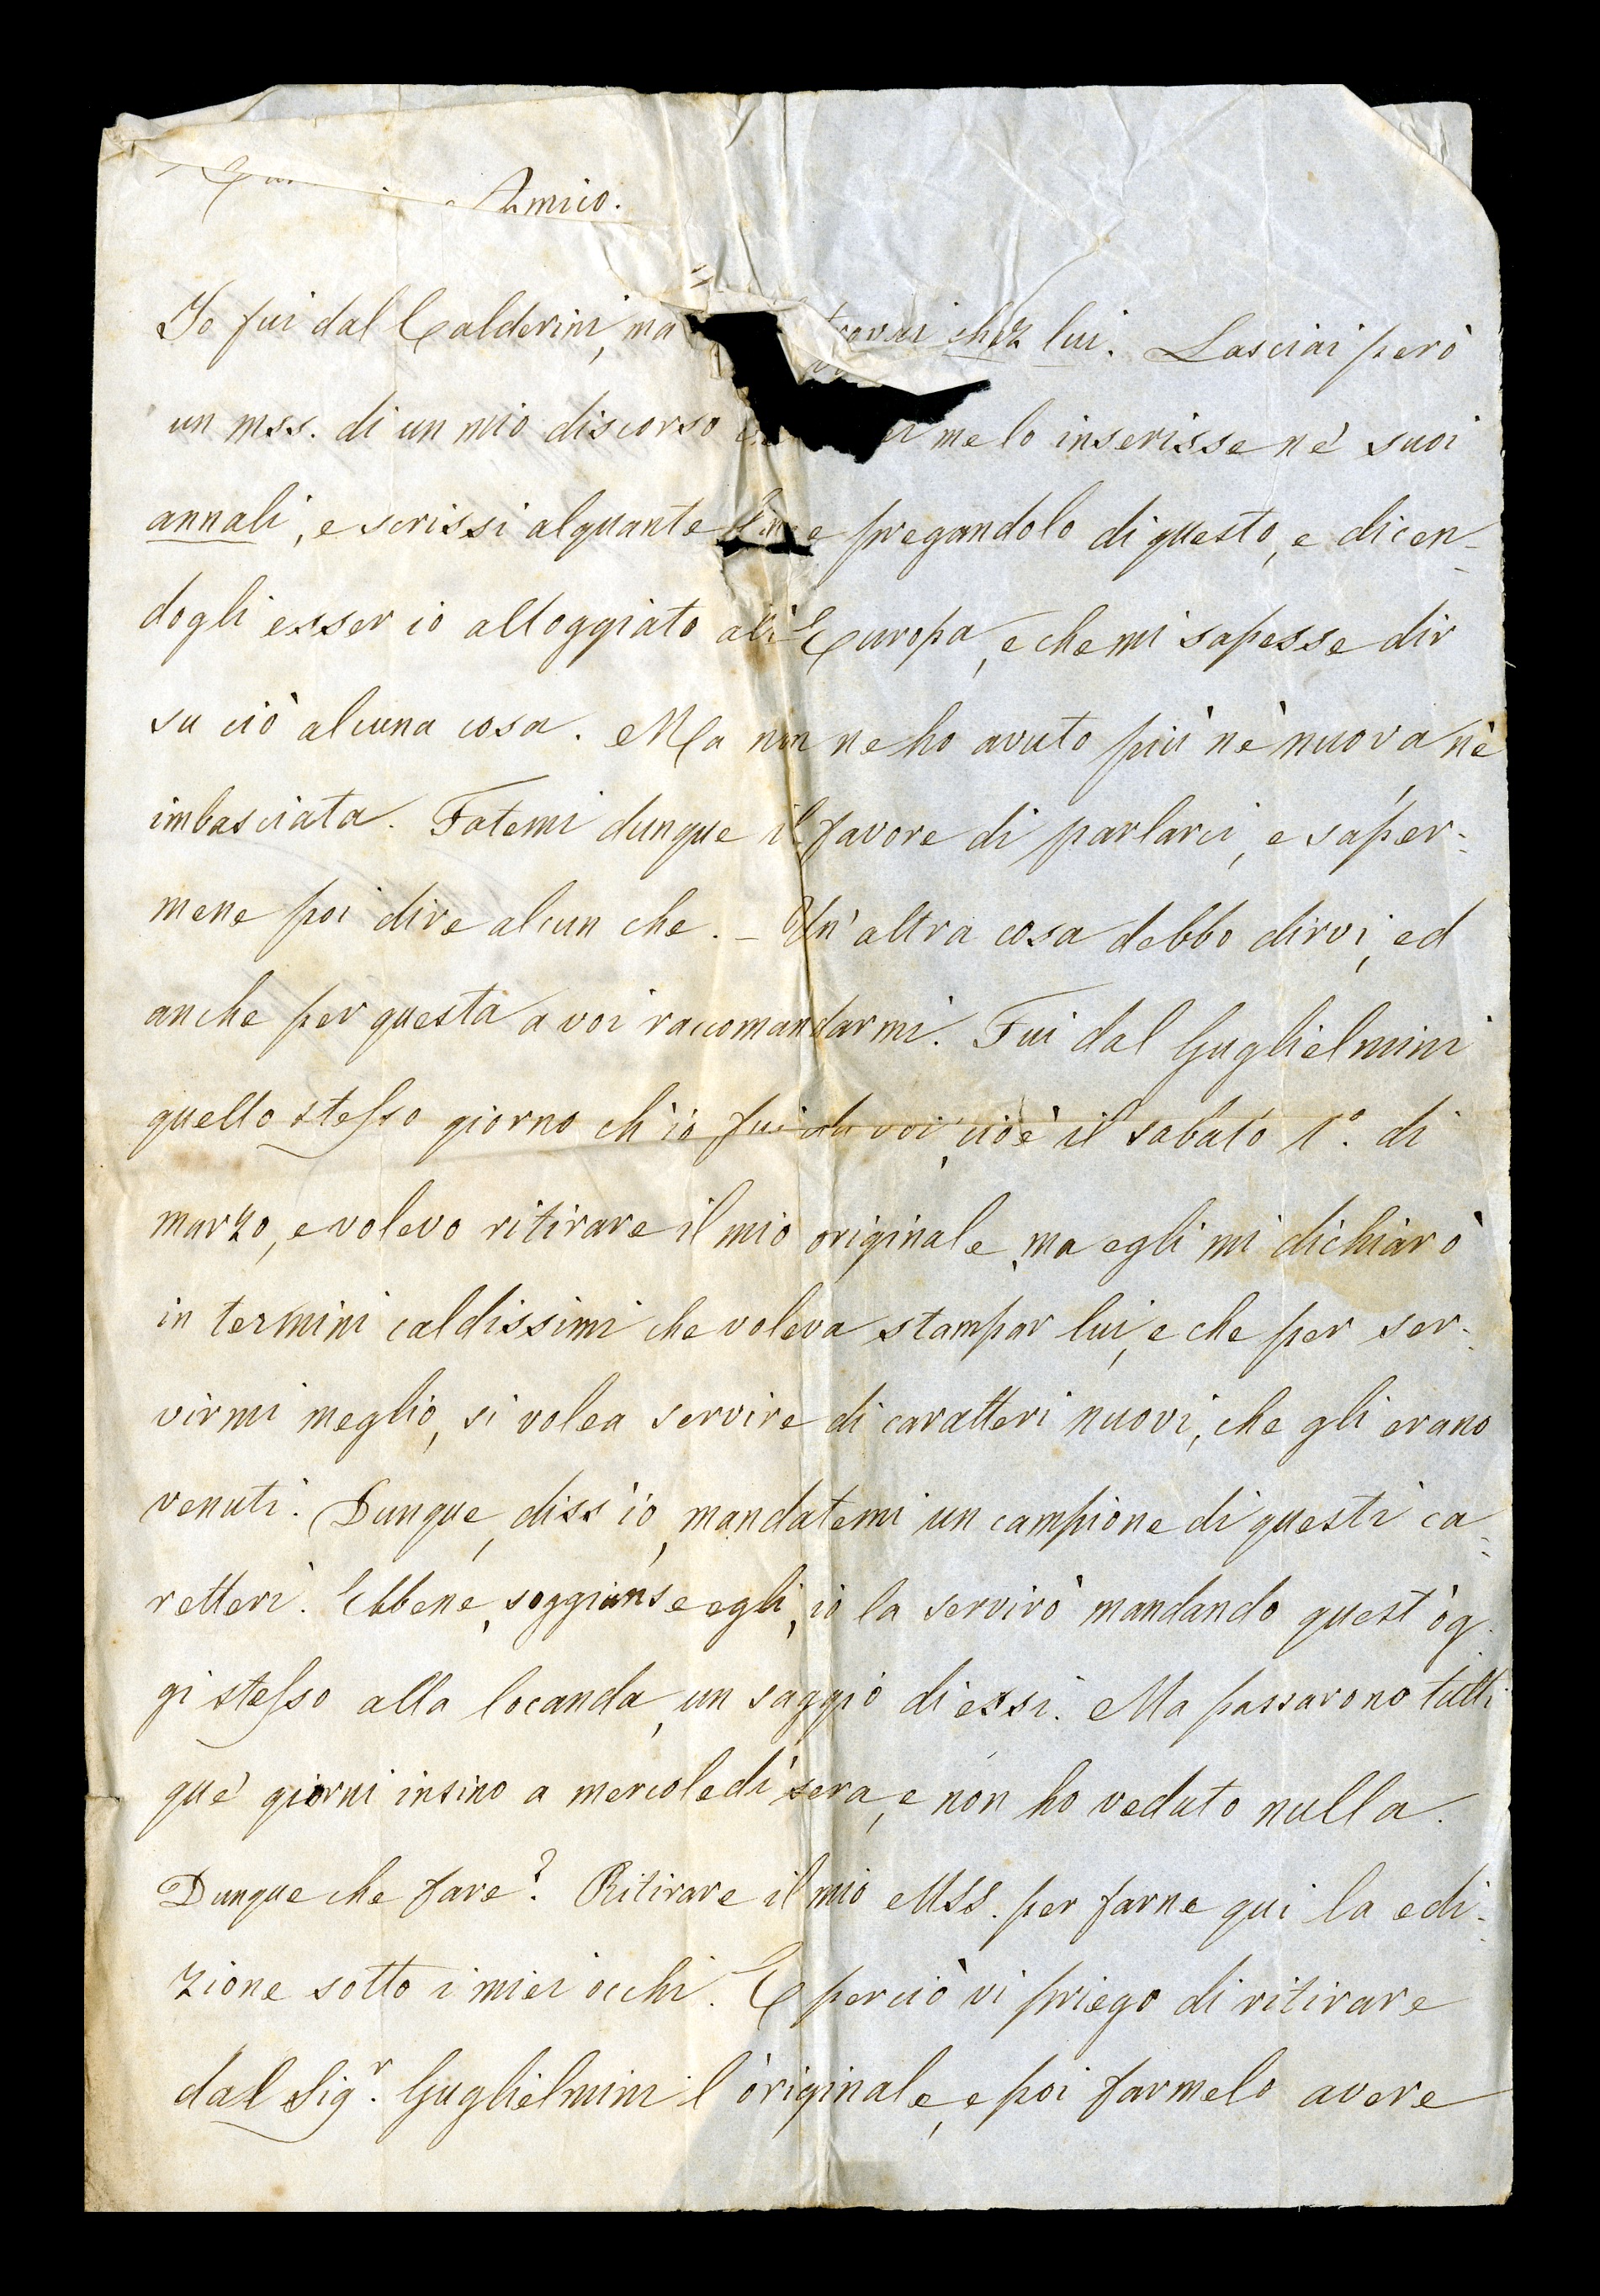 Amico.
Io fui dal Calderini, ma trovai chez lui. Lasciai però
un mss. di un mio discorso me lo inserisse ne' suoi
annali, e scrissi alquante linee pregandolo di questo, e dicen-
dogli esser io alloggiato all'Europa, e che mi sapesse dir
su ciò alcuna cosa. Ma non ne ho avuto più nè nuova nè
imbasciata. Fatemi dunque il favore di parlarci, e saper-
mene poi dire alcun che. – Un'altra cosa debbo dirvi, ed
anche per questa a voi raccomandarmi. Fui dal Guglielmini
quello stesso giorno ch'io fui da voi, cioè il sabato 1º. di
marzo, e volevo ritirare il mio originale, ma egli mi dichiarò
in termini caldissimi che voleva stampar lui, e che per ser-
virmi meglio, si volea servire di caratteri nuovi, che gli erano
venuti. Dunque, diss'io, mandatemi un campione di questi ca-
retteri. Ebbene, soggiunse egli, io la servirò mandando quest'og-
gi stesso alla locanda, un saggio di essi. Ma passarono tutti
que' giorni insino a mercoledì sera, e non ho veduto nulla.
Dunque che fare? Ritirare il mio Mss. per farne qui la edi-
zione sotto i miei occhi. E perciò vi priego di ritirare
dal Sigr. Guglielmini l'originale, e poi farmelo avere